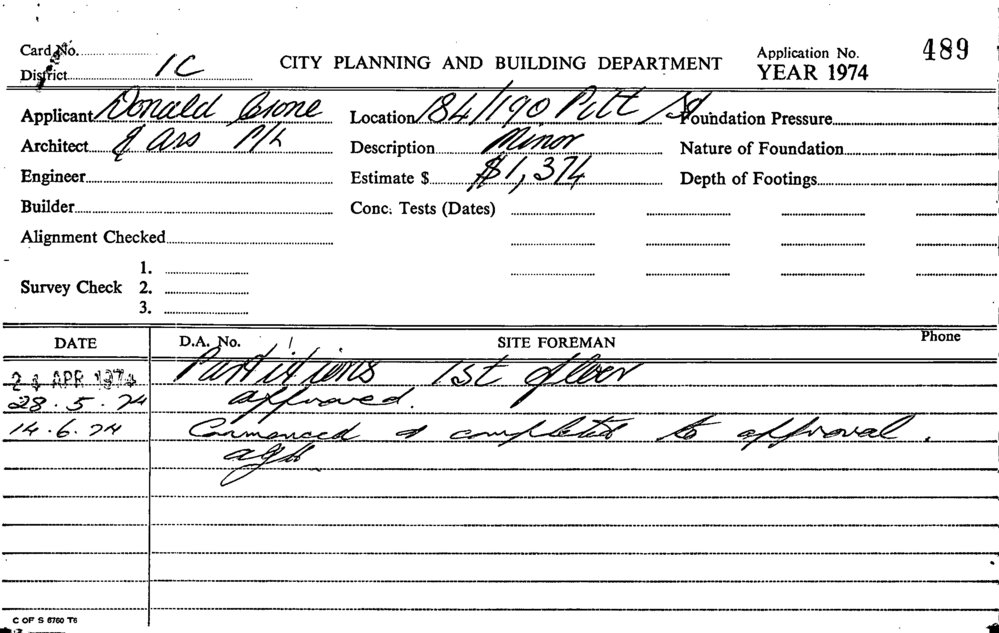 Card No.
District 1C
CITY PLANNING AND BUILDING DEPARTMENT
Application No. 489
YEAR 1974
Applicant Donald Crone
Location 184/190 Pitt St
Foundation Pressure
Architect & Ass P/L
Description Minor
Nature of Foundation
Engineer
Estimate $ $1,374
Depth of Footings
Builder
Conc. Tests (Dates)
Alignment Checked
Survey Check
1.
2.
3.
DATE D.A. No. SITE FOREMAN Phone
APR 1974 Partitions 1st floor
28.5.74 approved.
14.6.74 Commenced & completed to approval.
C OF S 6760 T6